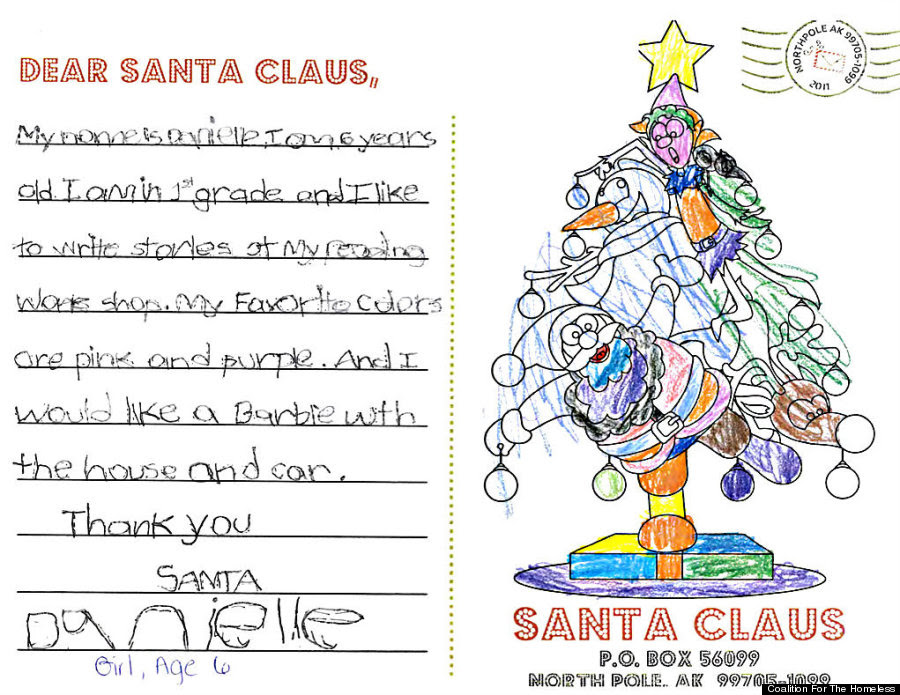 DEAR SANTA CLAUS,,
My name is Danielle, I am 6 years
old. I am in 1st grade and I like
to write stories at My reading
Work shop. My Favorite Colors
are pink and purple. And I
would like a Barbie with
the house and car.
Thank you
SANTA
Danielle
Girl, Age 6
NORTHPOLE AK 99705-1099
2011
SANTA CLAUS
P.O. BOX 56099
NORTH POLE, AK 99705-1099
Coalition For The Homeless